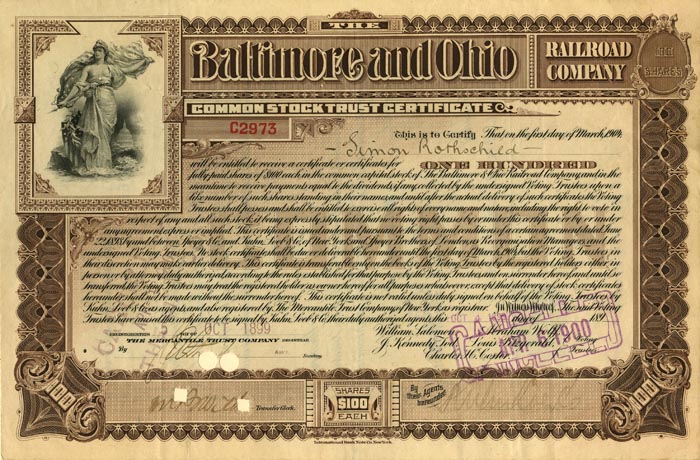 THE
Baltimore and Ohio
RAILROAD
COMPANY
100
SHARES
COMMON STOCK TRUST CERTIFICATE
C2973
This is to Certify That on the first day of March, 1904,
Simon Rothschild
will be entitled to receive a certificate or certificates for ONE HUNDRED
fully paid shares of $100 each in the common capital stock of The Baltimore & Ohio Railroad Company, and in the
meantime to receive payments equal to the dividends, if any, collected by the undersigned Voting Trustees upon a
like number of such shares standing in their names; and until after the actual delivery of such certificates the Voting
Trustees shall possess and shall be entitled to exercise all rights of every name and nature, including the right to vote in
respect of any and all such stock, it being expressly stipulated that no voting right passes by or under this certificate or by or under
any agreement express or implied. This certificate is issued under and pursuant to the terms and conditions of a certain agreement dated June
22, 1898, by and between Speyer & Co. and Kuhn, Loeb & Co., of New York, and Speyer Brothers, of London, as Reorganization Managers, and the
undersigned Voting Trustees. No stock certificate shall be due or deliverable hereunder until the first day of March, 1904, but the Voting Trustees, in
their discretion, may make earlier delivery. This certificate is transferable only on the books of the Voting Trustees by the registered holder, either in
person or by attorney duly authorized, according to the rules established for that purpose by the Voting Trustees, and on surrender hereof; and until so
transferred, the Voting Trustees may treat the registered holder as owner hereof for all purposes whatsoever, except that delivery of stock certificates
hereunder shall not be made without the surrender hereof. This certificate is not valid unless duly signed on behalf of the Voting Trustees by
Kuhn, Loeb & Co., as agents, and also registered by The Mercantile Trust Company of New York as registrar. In Witness Whereof, The said Voting
Trustees have caused this certificate to be signed by Kuhn, Loeb & Co., their duly authorized agents, this
189
OCT 1899
THE MERCANTILE TRUST COMPANY REGISTRAR
By
William Salomon
Abraham Wolff
J. Kennedy Tod
Louis Fitzgerald
Charles H. Coster
Voting
Trustees
CANCELLED
1900
Transfer Clerk.
SHARES
$100
EACH
By
Their Agents,
hereunder.
100
100
International Bank Note Co. New York.